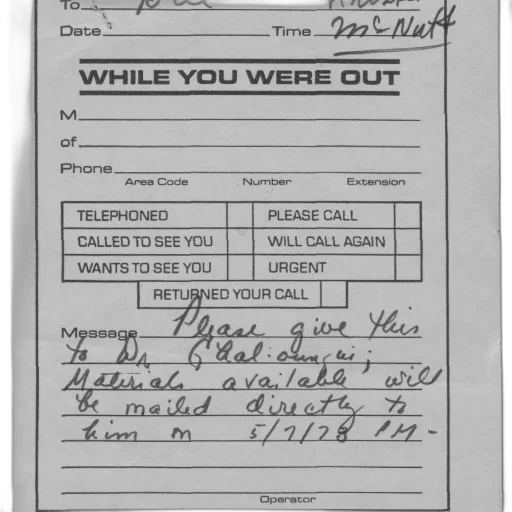 To
Date Time McNutt
WHILE YOU WERE OUT
M
of
Phone
Area Code Number Extension
TELEPHONED PLEASE CALL
CALLED TO SEE YOU WILL CALL AGAIN
WANTS TO SEE YOU URGENT
RETURNED YOUR CALL
Message Please give this
to Dr
Materials available will
be mailed directly to
him on 5/7/78 PM-
Operator